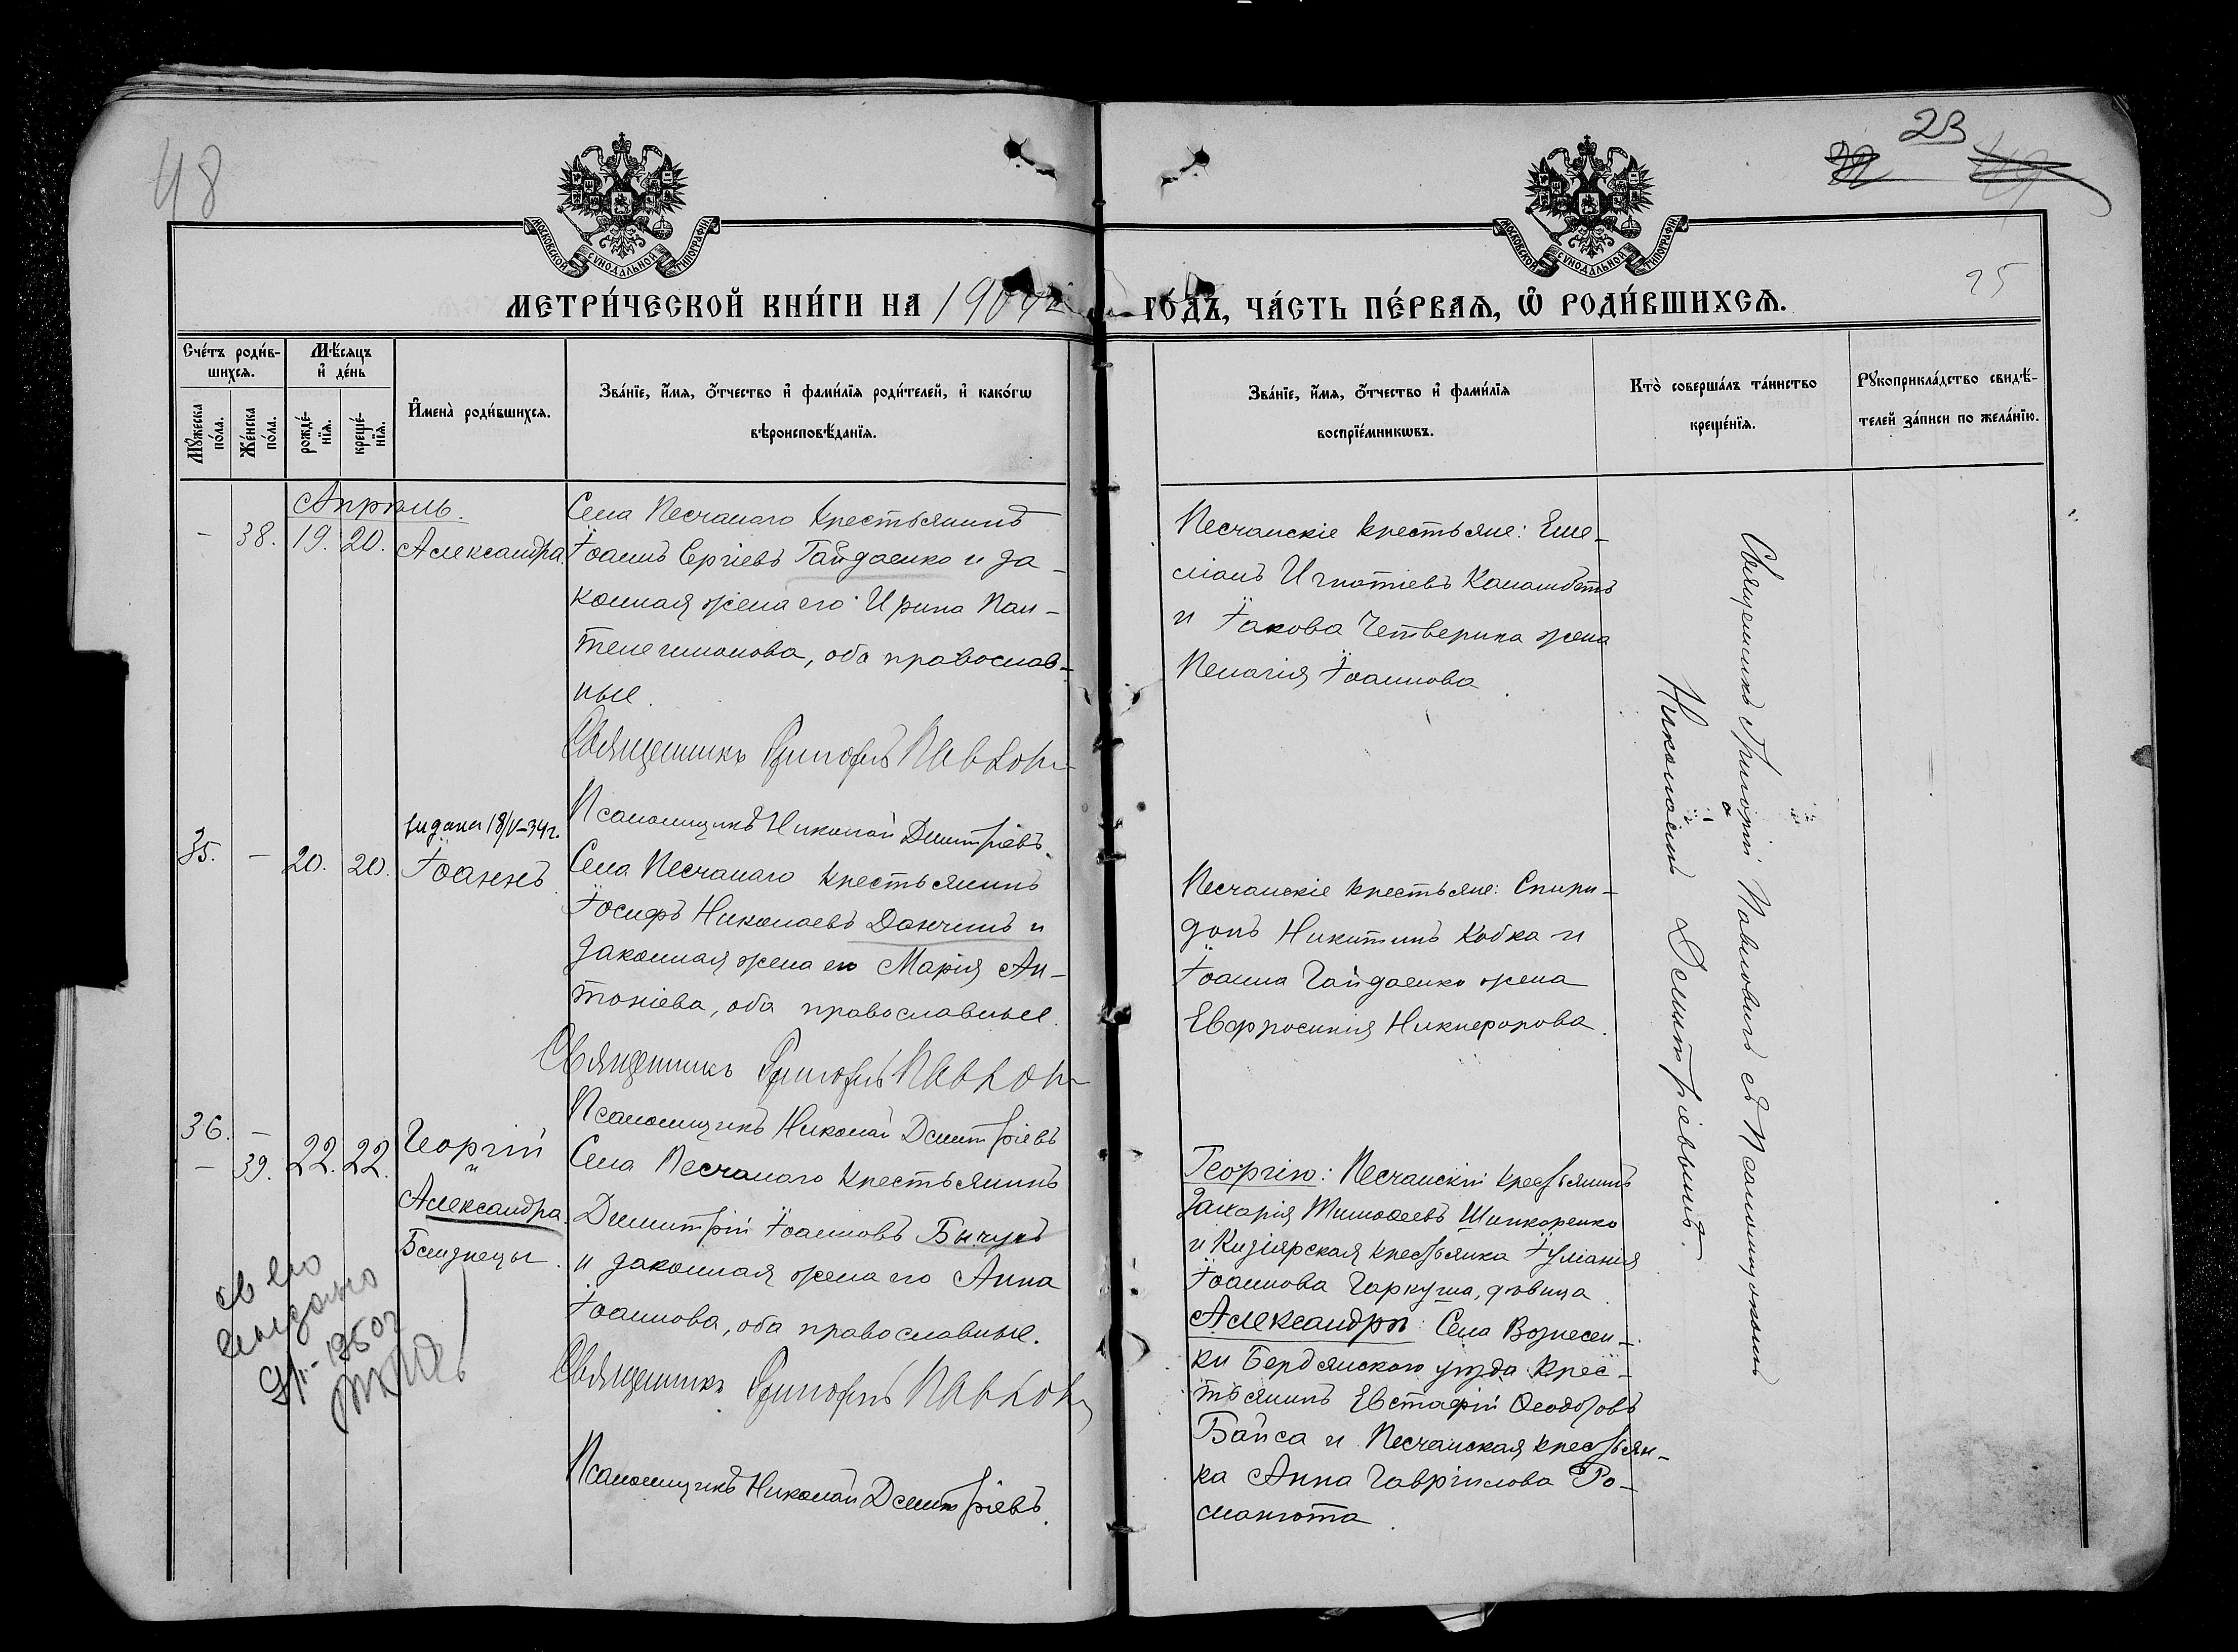 48
23
25
МОСКОВСКОЙ СУНОДАЛЬНОЙ ТИПОГРАФІИ
МОСКОВСКОЙ СУНОДАЛЬНОЙ ТИПОГРАФІИ
МЕТРИ́ЧЕСКОЙ КНИ́ГИ НА 1904 ГО́ДЪ, ЧА́СТЬ ПЕ́РВАЯ, Ѡ҆ РОДИ́ВШИХСЯ.
Сче́тъ роди́в-
шихся.
Мѣ́сяцъ
и҆ де́нь
Мꙋ́жеска
по́ла.
Же́нска
по́ла.
рожде́-
нїя.
креще́-
нїя.
И҆мена̀ роди́вшихся.
Зва́нїе, и҆́мя, ѻ҆́тчество и҆ фами́лїя роди́телей, и҆ како́гѡ
вѣроисповѣ́данїя.
Зва́нїе, и҆́мя, ѻ҆́тчество и҆ фами́лїя
воспрїе́мникѡвъ.
Кто̀ соверша́лъ та́инство
креще́нїя.
Рꙋкоприкла́дство свидѣ́-
телей за́писи по жела́нїю.
Апрѣль.
- 38. 19. 20. Александра.
Села Песчанаго крестьянинъ
Іоаннъ Сергіевъ Гайдаенко и за-
конная жена его Ирина Пан-
телеимонова, оба православ-
ные.
Священникъ Григорій Павлов
Псаломщикъ Николай Димитріевъ.
Песчанскіе крестьяне: Еме-
ліанъ Игнатіевъ
и Іакова Четверика жена
Пелагія Іоаннова.
Священникъ Григорій Павловичъ съ Псаломщикомъ
Николаемъ Димитріевымъ.
выдана 18/V-34г.
35. - 20. 20. Іоаннъ.
Села Песчанаго крестьянинъ
Іосифъ Николаевъ Данчинъ и
законная жена его Марія Ан-
тоніева, оба православные.
Священникъ Григорій Павлов
Псаломщикъ Николай Димитріевъ
Песчанскіе крестьяне: Спири-
донъ Никитинъ Кобка и
Іоанна Гайдаенко жена
Евфросинія Никифорова.
36. -
- 39. 22. 22.
Георгій
и
Александра.
Близнецы.
Села Песчанаго крестьянинъ
Димитрій Іоанновъ Бычукъ
и законная жена его Анна
Іоаннова, оба православные.
Священникъ Григорій Павлов
Псаломщикъ Николай Димитріевъ.
Георгію: Песчанскій крестьянинъ
Захарія Тимоѳеевъ Шинкоренко
и Кизіярская крестьянка Іуліанія
Іоаннова Гаркуша, дѣвица.
Александры: Села Вознесен-
ки Бердянскаго уѣзда крес-
тьянинъ Евстафій Ѳеодоровъ
Байса и Песчанская крестьян-
ка Анна Гавріилова Ро-
манюта.
св-во
выдано
1950г